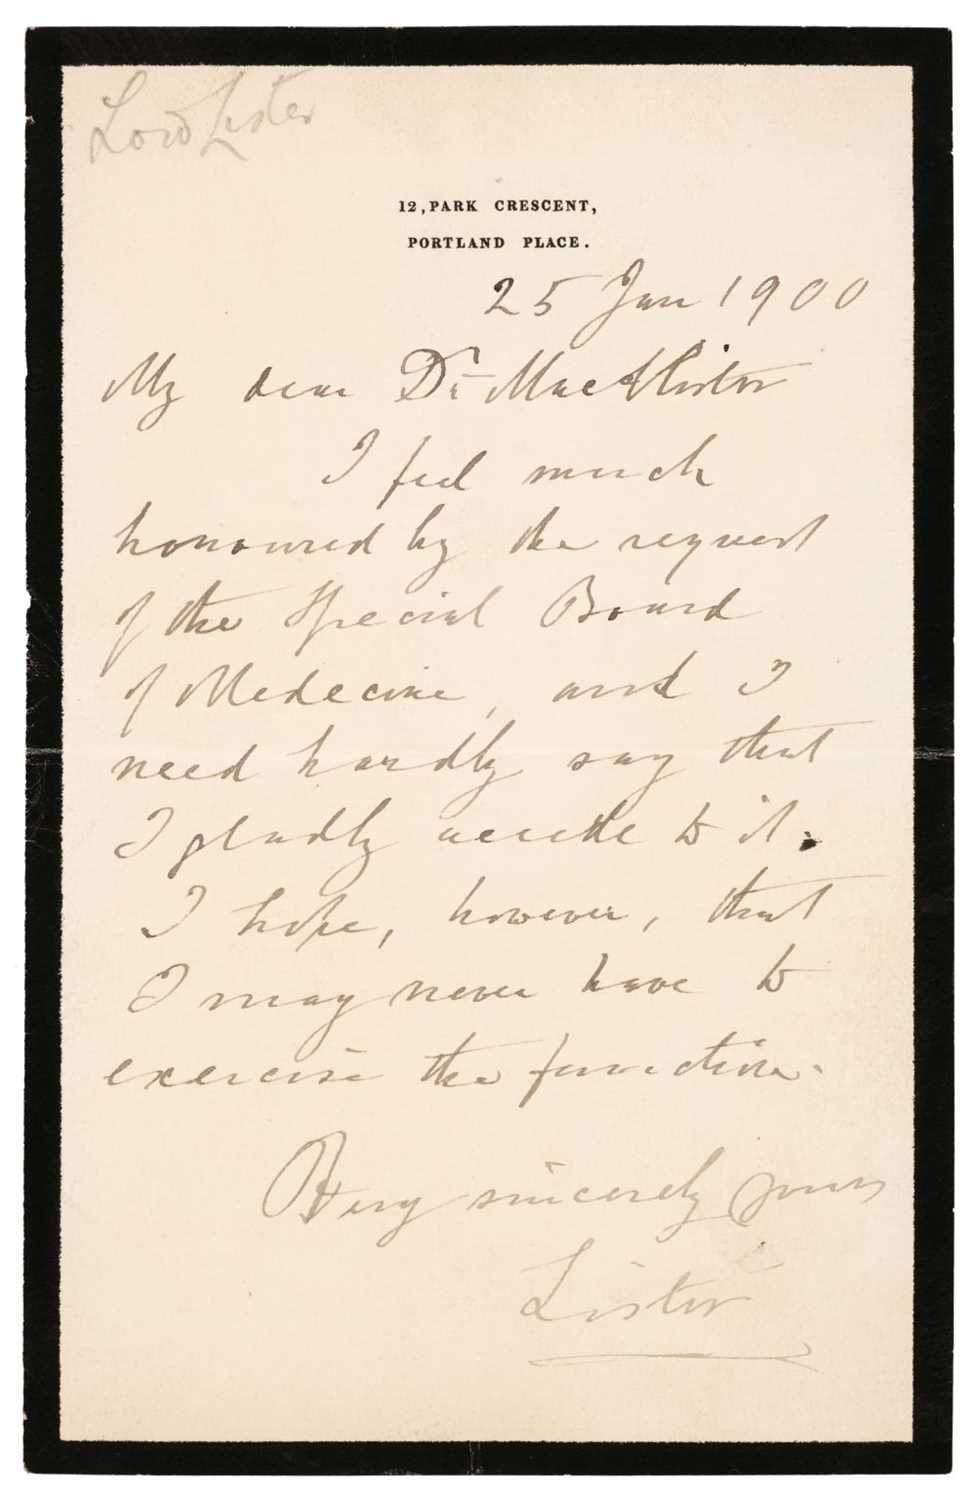 Lord Lister
12, PARK CRESCENT,
PORTLAND PLACE.
25 Jan 1900
My dear Dr MacAlister
I feel much
honoured by the request
of the Special Board
of Medecine, and I
need hardly say that
I gladly accede to it.
I hope, however, that
I may never have to
exercise the function.
Very sincerely yours
Lister